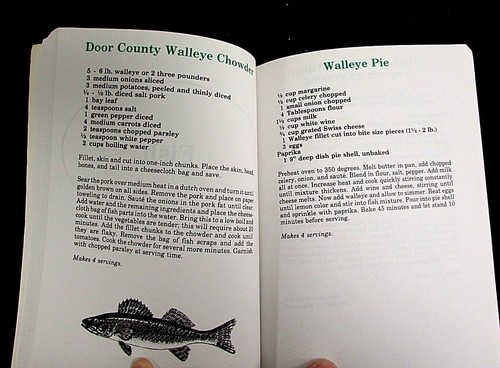 Door County Walleye Chowder
5 - 6 lb. walleye or 2 three pounders
3 medium onions sliced
3 medium potatoes, peeled and thinly diced
¼ - ½ lb. diced salt pork
1 bay leaf
4 teaspoons salt
1 green pepper diced
4 medium carrots diced
2 teaspoons chopped parsley
½ teaspoon white pepper
2 cups boiling water
Fillet, skin and cut into one-inch chunks. Place the skin, head,
bones, and tail into a cheesecloth bag and save.
Sear the pork over medium heat in a dutch oven and turn it until
golden brown on all sides. Remove the pork and place on paper
toweling to drain. Sauté the onions in the pork fat until clear
Add water and the remaining ingredients and place the cheese-
cloth bag of fish parts into the water. Bring this to a low boil and
cook until the vegetables are tender; this will require about 20
minutes. Add the fillet chunks to the chowder and cook until
they are flaky. Remove the bag of fish scraps and add the
tomatoes. Cook the chowder for several more minutes. Garnish
with chopped parsley at serving time.
Makes 4 servings.
Walleye Pie
cup margarine
cup celery chopped
1 small onion chopped
4 Tablespoons flour
cups milk
cup white wine
cup grated Swiss cheese
1 Walleye fillet cut into bite size pieces (1½ - 2 lb.)
3 eggs
Paprika
1 9" deep dish pie shell, unbaked
Preheat oven to 350 degrees. Melt butter in pan, add chopped
celery, onion, and sauté. Blend in flour, salt, pepper. Add milk
all at once. Increase heat and cook quickly stirring constantly
until mixture thickens. Add wine and cheese, stirring until
cheese melts. Now add walleye and allow to simmer. Beat eggs
until lemon color and stir into fish mixture. Pour into pie shell
and sprinkle with paprika. Bake 45 minutes and let stand 10
minutes before serving.
Makes 4 servings.